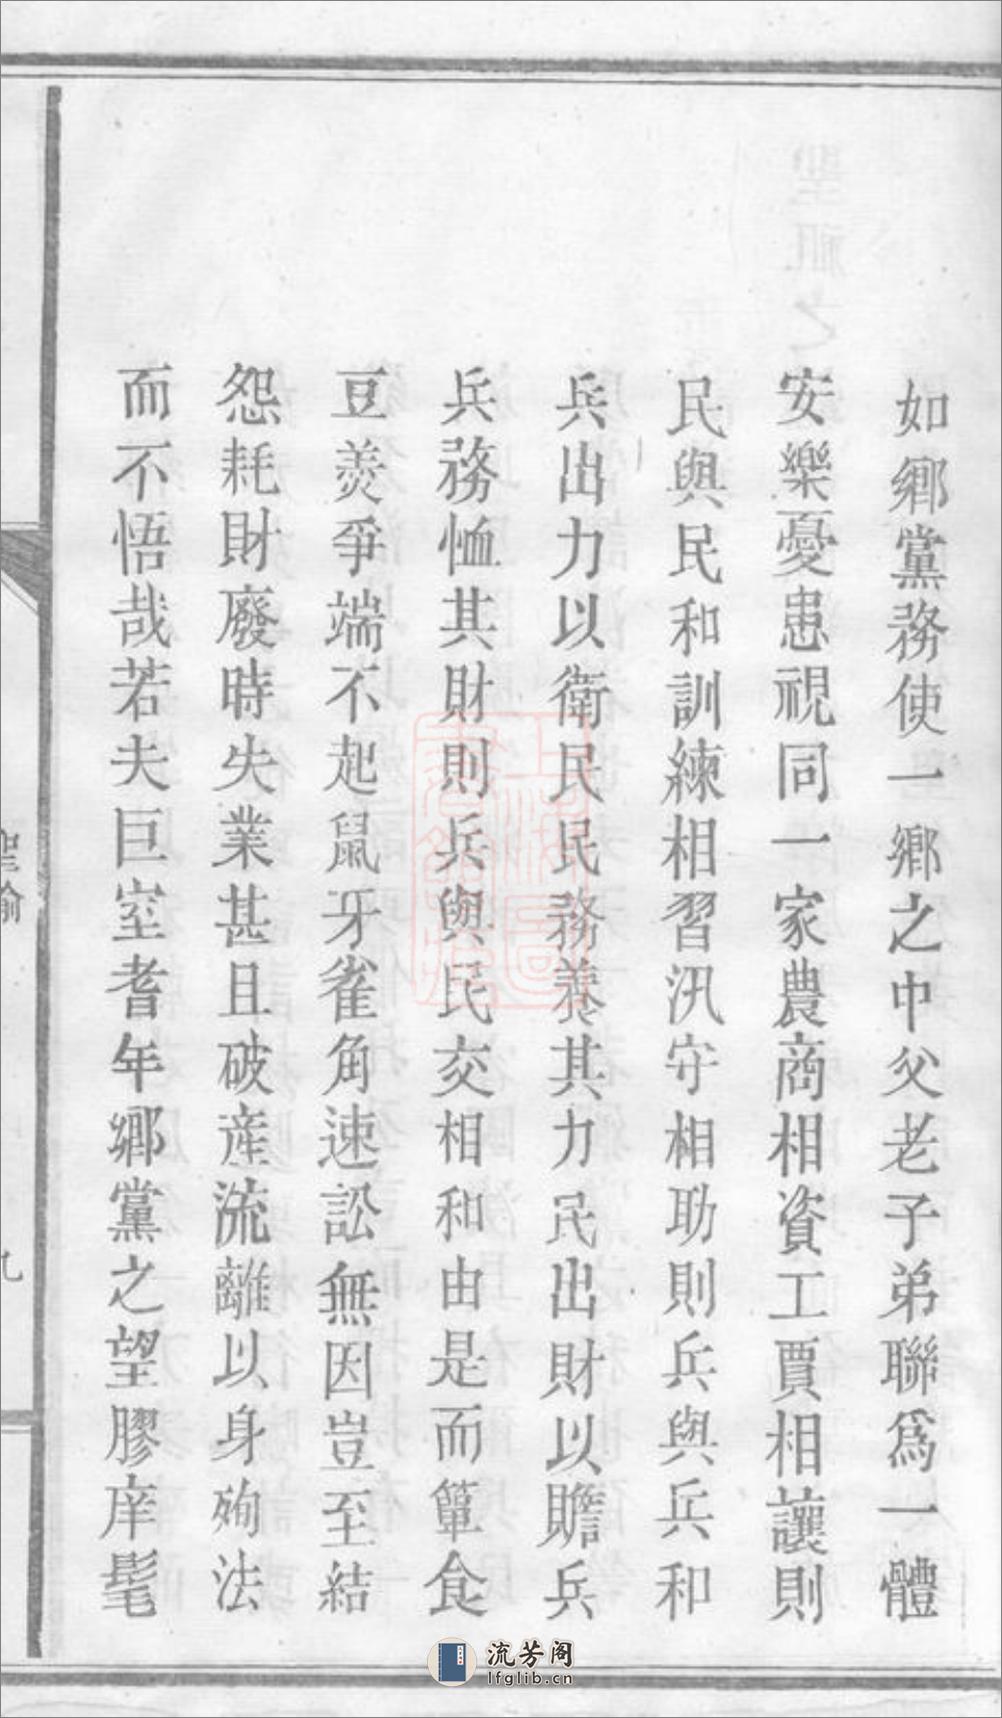 如鄉黨務使一鄉之中父老子弟聯爲一體
安樂憂患視同一家農商相資工賈相讓則
民與民和訓練相習汛守相助則兵與兵和
兵出力以衛民民務養其力民出財以贍兵
兵務恤其財則兵與民交相和由是而簞食
豆羹爭端不起鼠牙雀角速訟無因豈至結
怨耗財廢時失業甚且破産流離以身殉法
而不悟哉若夫巨室耆年鄉黨之望膠庠髦
聖諭
九
流芳阁
lfglib.cn